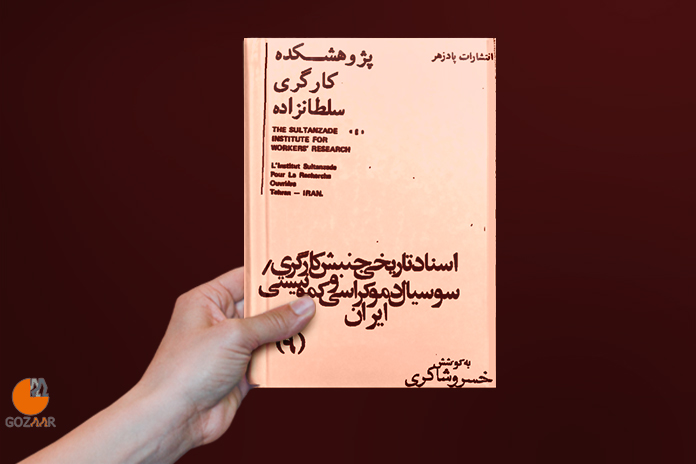 پژوهشکده
کارگری
سلطانزاده
انتشارات پادزهر
THE SULTANZADE
INSTITUTE FOR
WORKERS' RESEARCH
L'Institut Sultanzade
Pour La Recherche
Ouvrière
Tehran — IRAN.
اسناد تاریخی جنبش کارگری/
سوسیال دموکراسی و کمونیستی
ایران
به کوشش
خسرو شاکری
GOZAAR